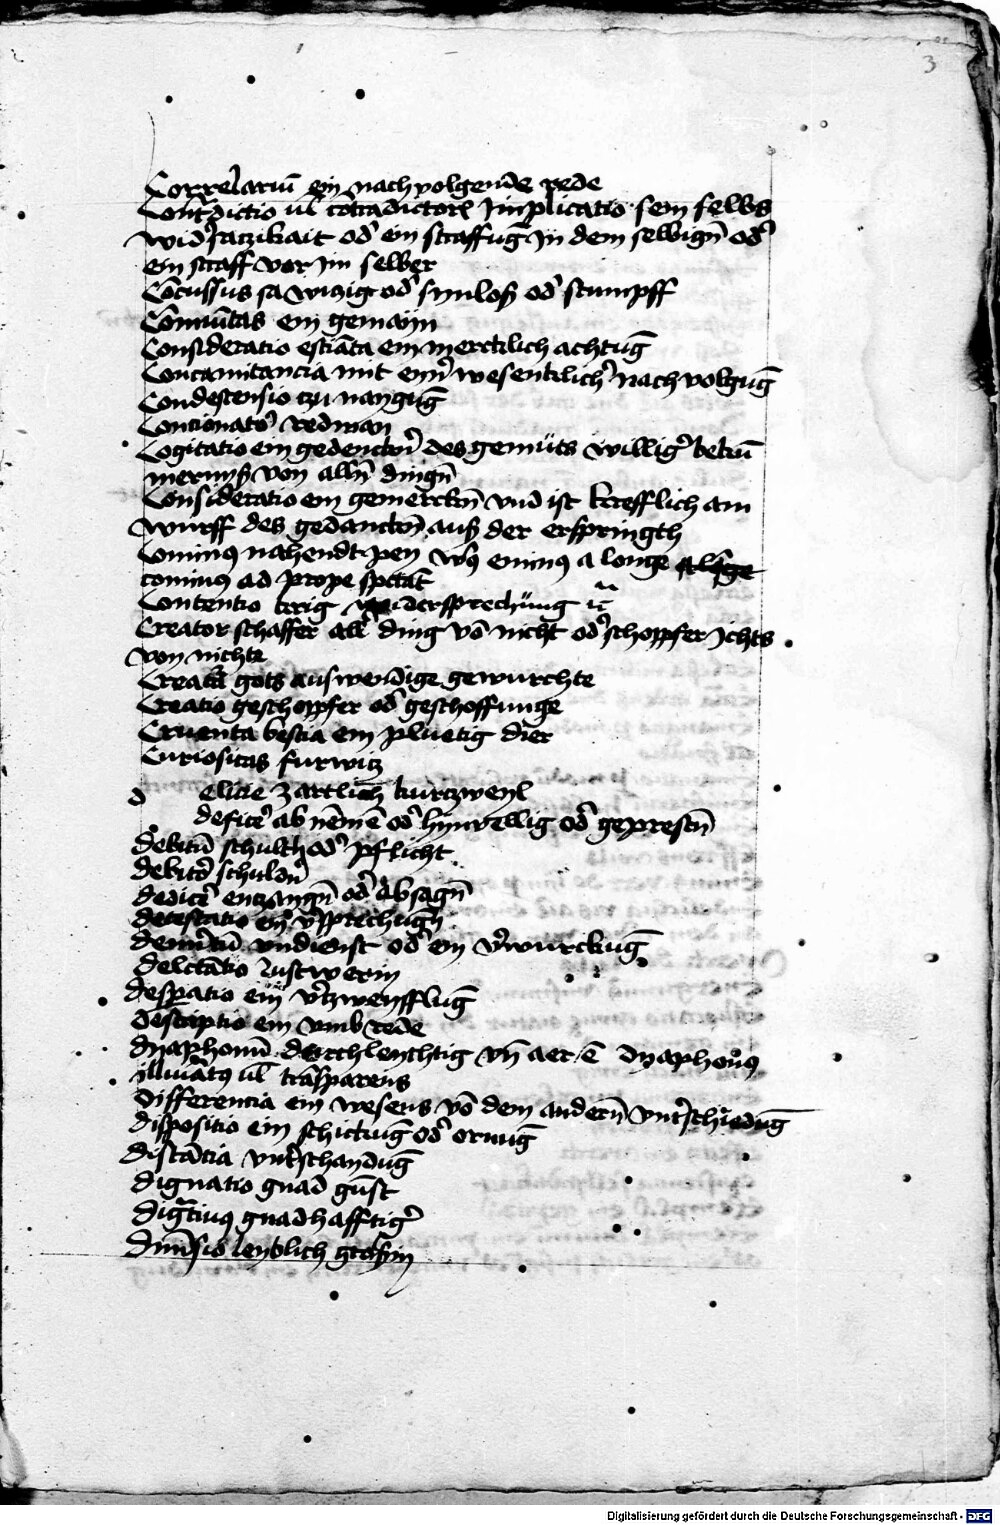 3
Correlariu͞ ein nachvolgende rede
Contᵃdictio ul̄ cōtradictorꝝ Implicatio sein selbs
widersatzikait od̕ ein straffūg In dem selbign̄ od̕
ein straff vor im selber
Cōcussus sa witzig od̕ synloß od̕ stumpff
Cōmūitas ein gemayn
Consideratio ein mercklich achtūg
Concomitancia mit eyn̄ wesenklich̕ nachvolgūg
Condescensio tzu naygūg
Concionator̕ redman
Cogitatio ein gedenckn̄ des gemüts willig̕
von alln̄ dingn̄
Consideratio ein gemerckn̄ vnd ist trefflich am
wurff des gedanckn̄ auß der erspringth
Cominꝰ nahendt eminꝰ a longe
cominꝰ ad prope spectat
Contentio krig widersprechung
Creator schaffer all̕ ding vō nicht od̕ schopffer Ichts
von nichte
Creatᵃ gots auswendige gewurchte
Creatio geschopfer od̕ geschoffunge
Cruenta bestia ein pluetig dier
Curiositas furwitz
d elicie zartlich kurtzweyl
deficē ab nēmē od̕ hynvellig od̕ geprestn̄
debitū schulth od̕ pflicht
debitor̕ schuldn̕
dedicē entsagn̄ od̕ absagn̄
detestatio ein v̕sprechūg
demeritū vndienst od̕ ein v̕wurckūg
delectatio lustwerin
desperatio ein v̕tzweyfflūg
descriptio ein vmbrede
dyaphonū durchleuchtig vn̄ aer ē dyaphonꝰ
illuīatꝰ ul̄ trāsparens
Differencia ein wesens vō dem andern̄ vnt̕schiedūg
dispositio ein schickūg od̕ ornūg
distācia vnt̕schaydūg
dignatio gnad gunst
digᵃtiuꝰ gnadhafftig̕
dimēsio leyblich
Digitalisierung gefördert durch die Deutsche Forschungsgemeinschaft - DFG